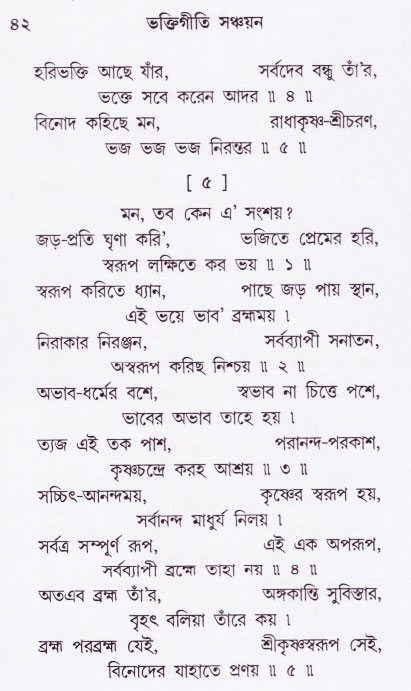 ৪২ ভক্তিগীতি সঞ্চয়ন
হরিভক্তি আছে যাঁর, সর্বদেব বন্ধু তাঁ'র,
ভক্তে সবে করেন আদর ॥ ৪ ॥
বিনোদ কহিছে মন, রাধাকৃষ্ণ-শ্রীচরণ,
ভজ ভজ ভজ নিরন্তর ॥ ৫ ॥
[ ৫ ]
মন, তব কেন এ' সংশয়?
জড়-প্রতি ঘৃণা করি', ভজিতে প্রেমের হরি,
স্বরূপ লক্ষিতে কর ভয় ॥ ১ ॥
স্বরূপ করিতে ধ্যান, পাছে জড় পায় স্থান,
এই ভয়ে ভাব' ব্রহ্মময় ।
নিরাকার নিরঞ্জন, সর্বব্যাপী সনাতন,
অস্বরূপ করিছ নিশ্চয় ॥ ২ ॥
অভাব-ধর্মের বশে, স্বভাব না চিত্তে পশে,
ভাবের অভাব তাহে হয় ।
ত্যজ এই তক পাশ, পরানন্দ-পরকাশ,
কৃষ্ণচন্দ্রে করহ আশ্রয় ॥ ৩ ॥
সচ্চিৎ-আনন্দময়, কৃষ্ণের স্বরূপ হয়,
সর্বানন্দ মাধুর্য নিলয় ।
সর্বত্র সম্পূর্ণ রূপ, এই এক অপরূপ,
সর্বব্যাপী ব্রহ্মে তাহা নয় ॥ ৪ ॥
অতএব ব্রহ্ম তাঁ'র, অঙ্গকান্তি সুবিস্তার,
বৃহৎ বলিয়া তাঁরে কয় ।
ব্রহ্ম পরব্রহ্ম যেই, শ্রীকৃষ্ণস্বরূপ সেই,
বিনোদের যাহাতে প্রণয় ॥ ৫ ॥